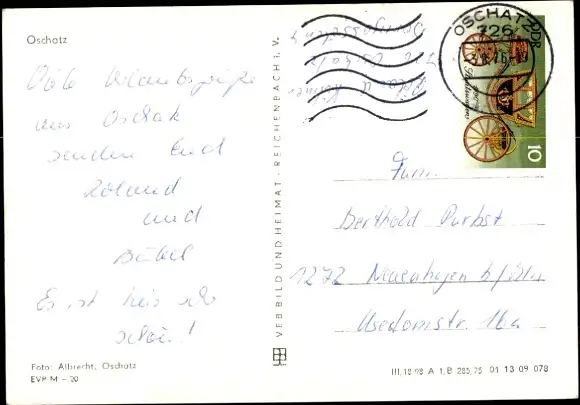 Oschatz
Viele Urlaubsgrüße
aus Oschatz
senden Euch
Roland
und
Bärbel
Es ist hier sehr
schön!
Foto: Albrecht, Oschatz
EVP M – 20
VEB BILD UND HEIMAT · REICHENBACH i. V.
OSCHATZ
726
DDR
10
Fam.
Berthold Purbst
1272 Neuenhagen b/Bln
Usedomstr. 16a
III, 18 98 A 1, B 285, 75 01 13 09 078